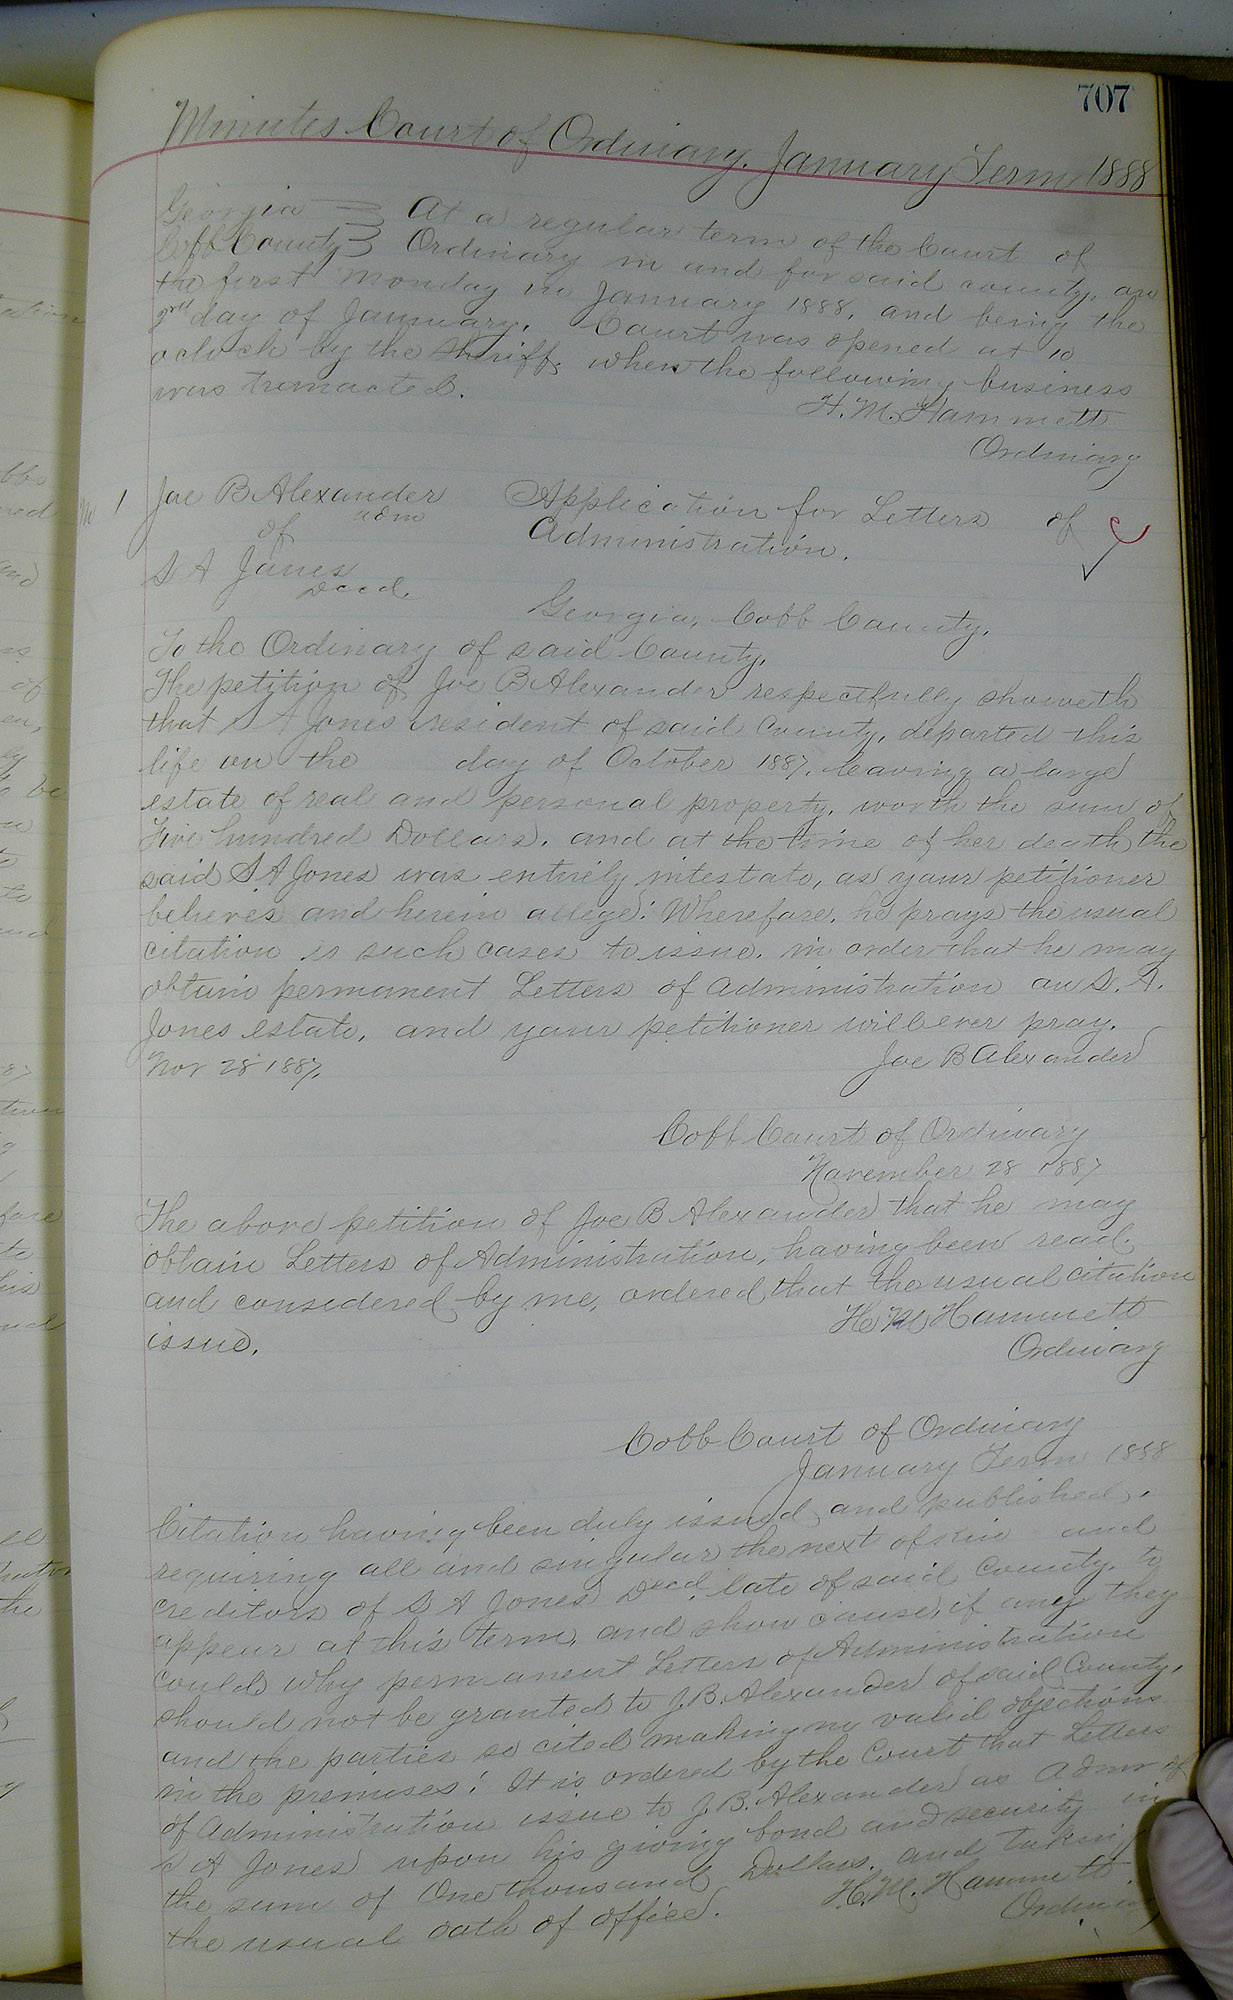 707
Minutes Court of Ordinary, January Term 1888
Georgia } At a regular term of the Court of
Cobb County } Ordinary in and for said county, on
the first Monday in January 1888, and being the
2nd day of January. Court was opened at 10
oclock by the Sheriff, when the following business
was transacted.
H. M. Hammett
Ordinary
1 Joe B Alexander Application for Letters of
adm Administration.
of
S A Jones
Decd.
Georgia, Cobb County.
To the Ordinary of said County.
The petition of Joe B Alexander respectfully showeth
that S A Jones resident of said County, departed this
life on the day of October 1887, leaving a large
estate of real and personal property, worth the sum of
Five hundred Dollars, and at the time of her death the
said S A Jones was entirely intestate, as your petitioner
believes and herein allege: Wherefore, he prays the usual
citation is such cases to issue, in order that he may
obtain permanent Letters of administration on S. A.
Jones estate, and your petitioner will ever pray.
Nov 28 1887. Joe B Alexander
Cobb Court of Ordinary
November 28 1887
The above petition of Joe B Alexander that he may
obtain Letters of Administration, having been read
and considered by me, ordered that the usual citation
issue. H M Hammett
Ordinary
Cobb Court of Ordinary
January Term 1888
Citation having been duly issued and published,
requiring all and singular the next of kin and
creditors of S A Jones Decd, late of said County, to
appear at this term, and show cause, if any they
could why permanent Letters of Administration
should not be granted to J. B. Alexander of said County,
and the parties so cited making no valid objections
in the premises: It is ordered by the Court that Letters
of Administration issue to J. B. Alexander as Admr of
S A Jones upon his giving bond and security in
the sum of One thousand Dollars, and taking
the usual oath of office. H. M. Hammett
Ordinary